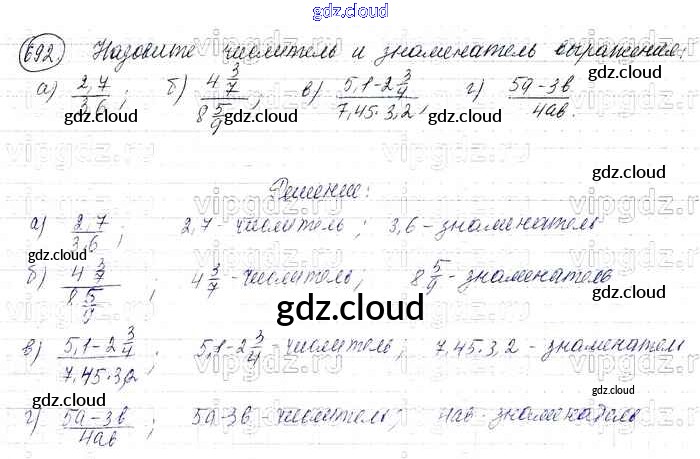 gdz.cloud
692. Назовите числитель и знаменатель выражения:
а) 2,7/3,6; б) 4 3/7 / 8 5/9; в) 5,1-2 3/4 / 7,45·3,2; г) 5a-3b/4ab.
gdz.cloud
gdz.cloud
vipgdz.ru
gdz.cloud
Решение:
а) 2,7/3,6; 2,7-числитель; 3,6-знаменатель
gdz.cloud
б) 4 3/7 / 8 5/9; 4 3/7-числитель; 8 5/9-знаменатель
gdz.cloud
gdz.cloud
в) 5,1-2 3/4 / 7,45·3,2; 5,1-2 3/4-числитель; 7,45·3,2-знаменатель
gdz.cloud
г) 5a-3b/4ab; 5a-3b-числитель; 4ab-знаменатель
gdz.cloud